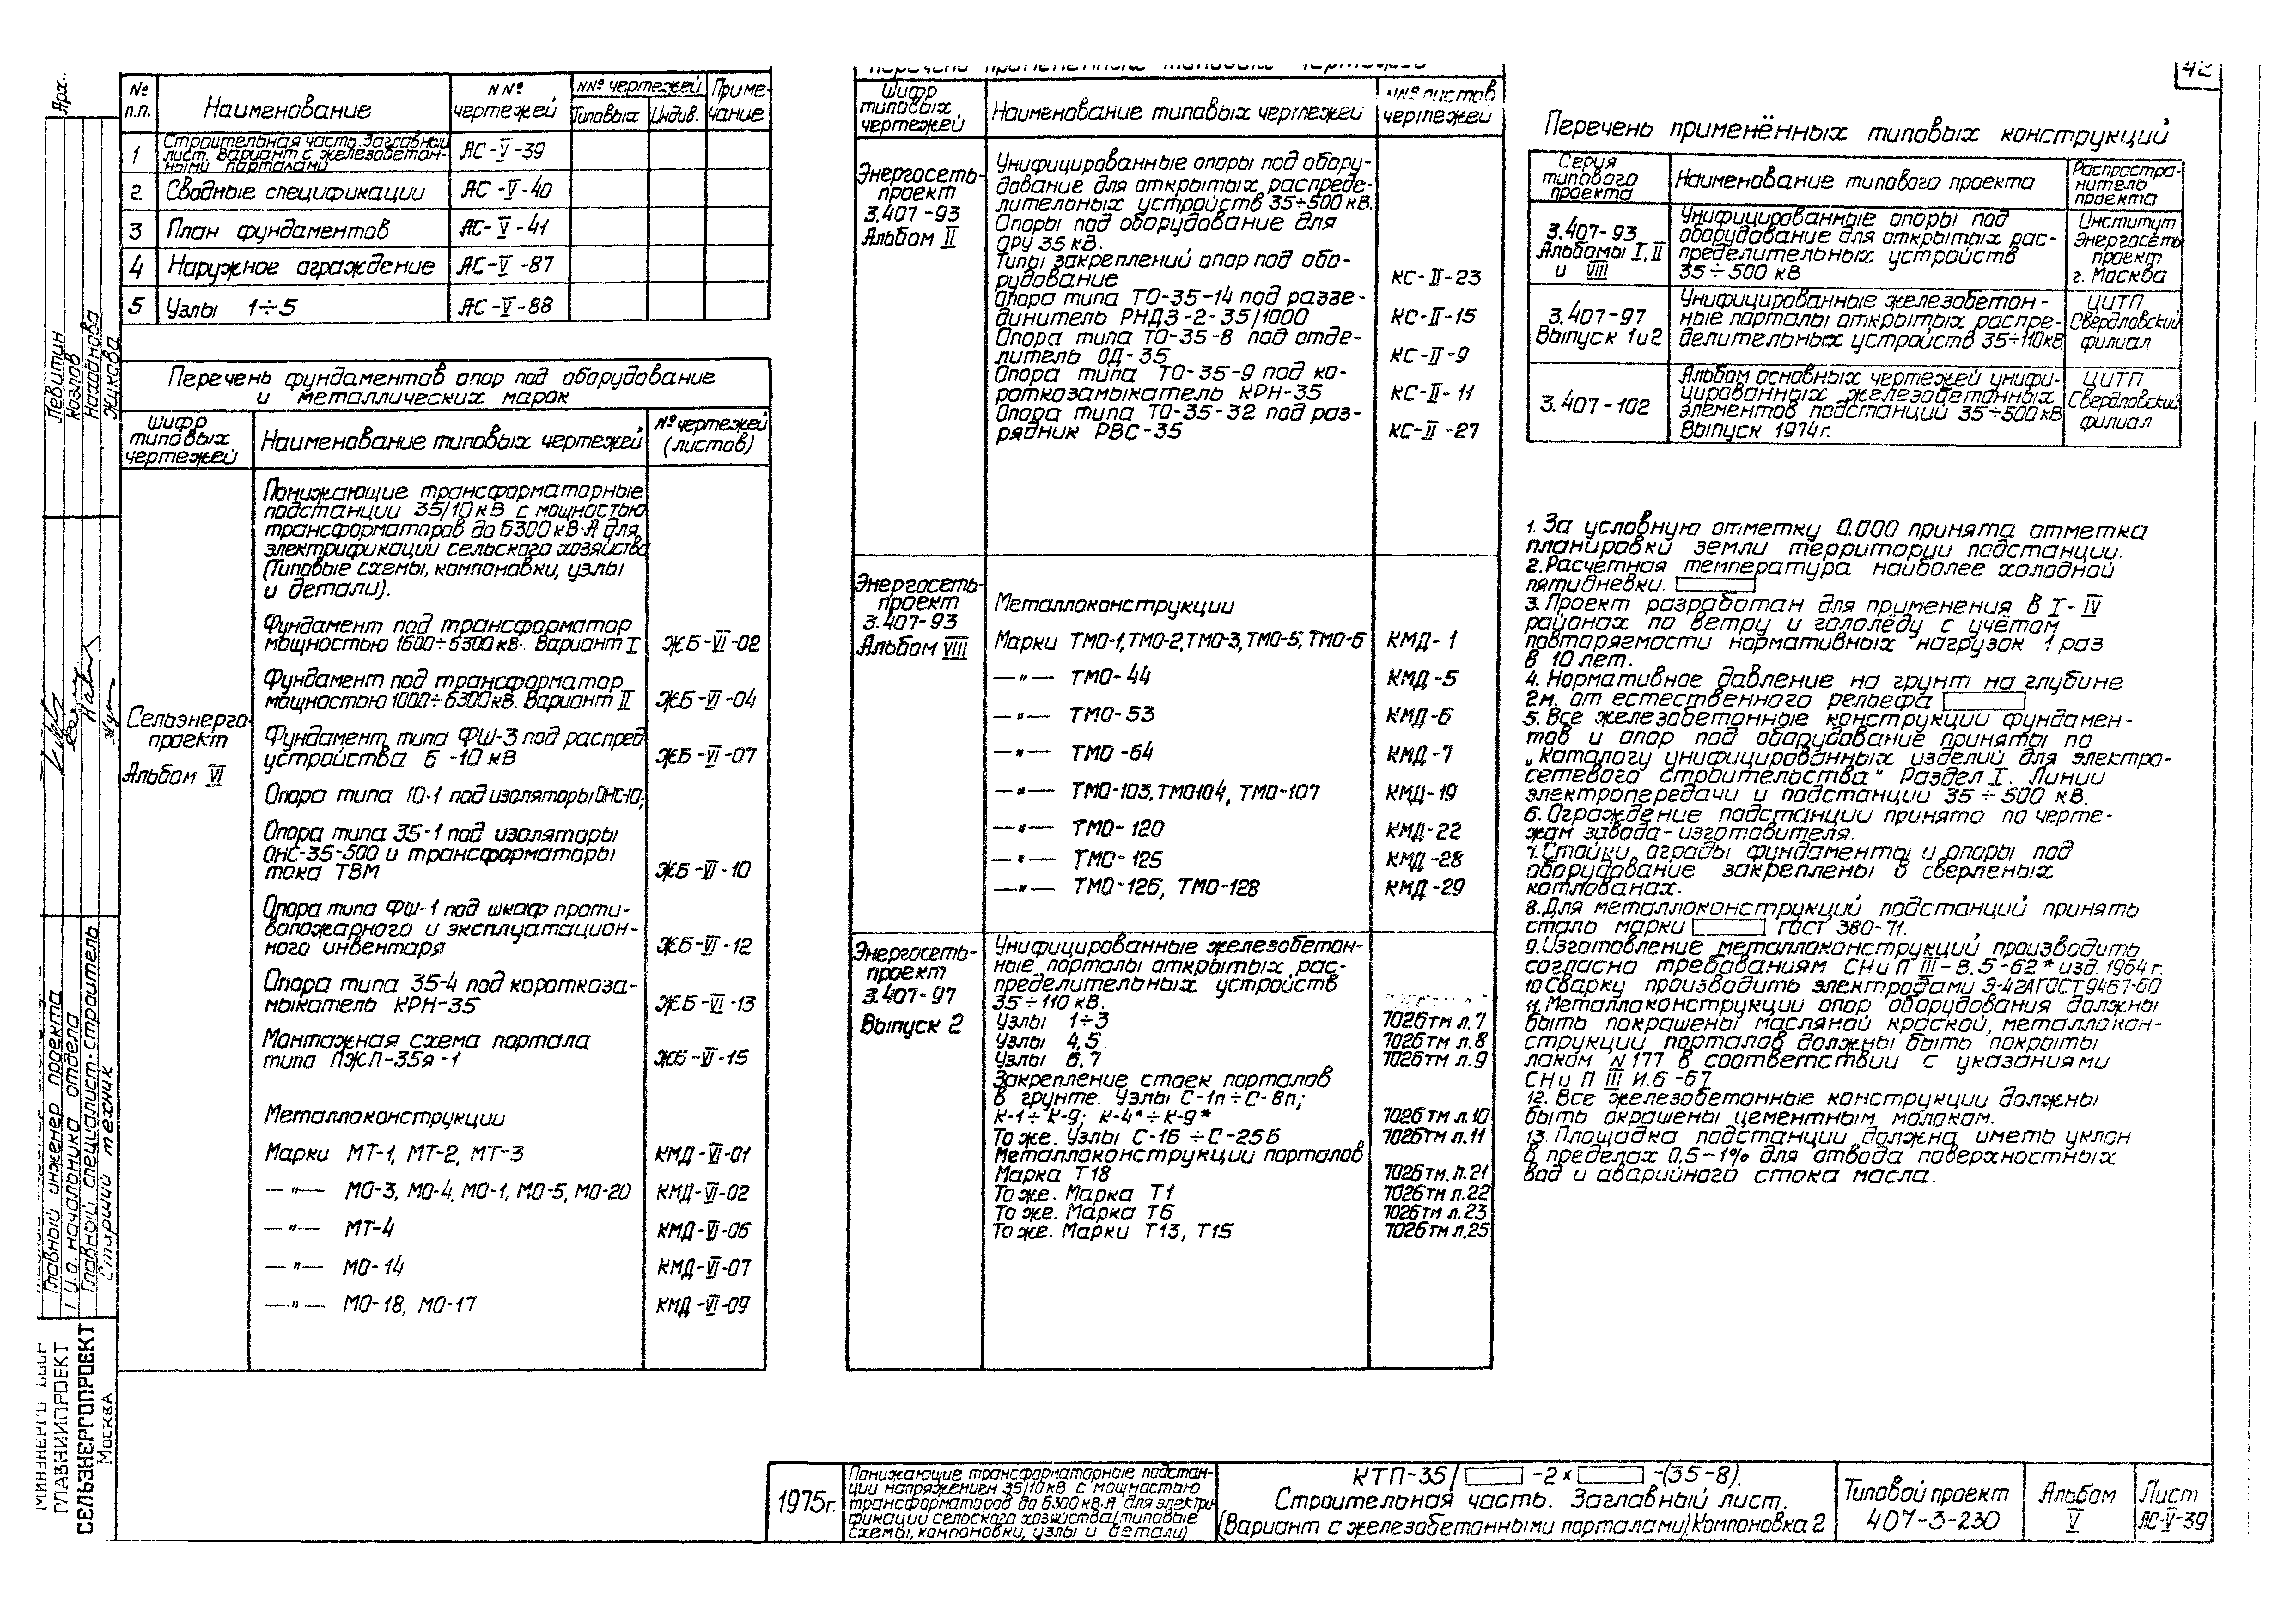 42
№ п.п. Наименование №№ чертежей №№ чертежей Типовых Индив. Приме-чание
1 Строительная часть. Заглавный
лист. Вариант с железобетон-
ными порталами АС-V-39
2. Сводные спецификации АС-V-40
3 План фундаментов АС-V-41
4 Наружное ограждение АС-V-87
5 Узлы 1÷5 АС-V-88
Перечень фундаментов опор под оборудование
и металлических марок
Шифр типовых чертежей Наименование типовых чертежей № чертежей (листов)
Сельэнерго-
проект
Альбом VI
Понижающие трансформаторные
подстанции 35/10кВ с мощностью
трансформаторов до 6300 кВ·А для
электрификации сельского хозяйства
(Типовые схемы, компоновки, узлы
и детали).
Фундамент под трансформатор
мощностью 1600÷6300кВ. Вариант I ЖБ-VI-02
Фундамент под трансформатор
мощностью 1000÷6300кВ. Вариант II ЖБ-VI-04
Фундамент типа ФШ-3 под распред
устройства 6-10 кВ ЖБ-VI-07
Опора типа 10-1 под изоляторы ОНС-10;
Опора типа 35-1 под изоляторы
ОНС-35-500 и трансформаторы
тока ТВМ ЖБ-VI-10
Опора типа ФШ-1 под шкаф проти-
вопожарного и эксплуатацион-
ного инвентаря ЖБ-VI-12
Опора типа 35-4 под короткоза-
мыкатель КРН-35 ЖБ-VI-13
Монтажная схема портала
типа ПЖСП-35Я-1 ЖБ-VI-15
Металлоконструкции
Марки МТ-1, МТ-2, МТ-3 КМД-VI-01
—"— МО-3, МО-4, МО-1, МО-5, МО-20 КМД-VI-02
—"— МТ-4 КМД-VI-06
—"— МО-14 КМД-VI-07
—"— МО-18, МО-17 КМД-VI-09
Перечень применённых типовых чертежей
Шифр типовых чертежей Наименование типовых чертежей №№ листов чертежей
Энергосеть-
проект
3.407-93
Альбом II
Унифицированные опоры под обору-
дование для открытых распреде-
лительных устройств 35÷500 кВ.
Опоры под оборудование для
ОРУ 35 кВ.
Типы закреплений опор под обо-
рудование КС-II-23
Опора типа ТО-35-14 под разъе-
динитель РНДЗ-2-35/1000 КС-II-15
Опора типа ТО-35-8 под отде-
литель ОД-35 КС-II-9
Опора типа ТО-35-9 под ко-
роткозамыкатель КРН-35 КС-II-11
Опора типа ТО-35-32 под раз-
рядник РВС-35 КС-II-27
Энергосеть-
проект
3.407-93
Альбом VIII
Металлоконструкции
Марки ТМО-1, ТМО-2, ТМО-3, ТМО-5, ТМО-6 КМД-1
—"— ТМО-44 КМД-5
—"— ТМО-53 КМД-6
—"— ТМО-64 КМД-7
—"— ТМО-103, ТМО104, ТМО-107 КМД-19
—"— ТМО-120 КМД-22
—"— ТМО-125 КМД-28
—"— ТМО-126, ТМО-128 КМД-29
Энергосеть-
проект
3.407-97
Выпуск 2
Унифицированные железобетон-
ные порталы открытых рас-
пределительных устройств
35÷110 кВ.
Узлы 1÷3 7026тм л.7
Узлы 4,5 7026тм л.8
Узлы 6,7 7026тм л.9
Закрепление стоек порталов
в грунте. Узлы С-1п÷С-8п;
К-1÷К-9; К-4*÷К-9* 7026тм л.10
То же. Узлы С-1Б÷С-25Б 7026тм л.11
Металлоконструкции порталов
Марка Т18 7026тм.л.21
То же. Марка Т1 7026тм л.22
То же. Марка Т6 7026тм л.23
То же. Марки Т13, Т15 7026тм л.25
Перечень применённых типовых конструкций
Серия типового проекта Наименование типового проекта Распростра-нителa проекта
3.407-93
Альбомы I, II
и VIII
Унифицированные опоры под
оборудование для открытых рас-
пределительных устройств
35÷500 кВ
Институт
Энергосеть
проект
г. Москва
3.407-97
Выпуск 1и2
Унифицированные железобетон-
ные порталы открытых распре-
делительных устройств 35÷110кВ
ЦИТП
Свердловский
филиал
3.407-102
Альбом основных чертежей унифи-
цированных железобетонных
элементов подстанций 35÷500кВ
Выпуск 1974г.
ЦИТП
Свердловский
филиал
1. За условную отметку 0.000 принята отметка
планировки земли территории подстанции.
2. Расчетная температура наиболее холодной
пятидневки.
3. Проект разработан для применения в I-IV
районах по ветру и гололёду с учётом
повторяемости нормативных нагрузок 1 раз
в 10 лет.
4. Нормативное давление на грунт на глубине
2м. от естественного рельефа
5. Все железобетонные конструкции фундамен-
тов и опор под оборудование приняты по
„Каталогу унифицированных изделий для электро-
сетевого строительства" Раздел I. Линии
электропередачи и подстанции 35÷500 кВ.
6. Ограждение подстанции принято по черте-
жам завода-изготовителя.
7. Стойки ограды фундаменты и опоры под
оборудование закреплены в сверленых
котлованах.
8. Для металлоконструкций подстанций принять
сталь марки ГОСТ 380-71.
9. Изготовление металлоконструкций производить
согласно требованиям СНиП III-В.5-62* изд. 1964г.
10 Сварку производить электродами Э-42А ГОСТ 9467-60
11. Металлоконструкции опор оборудования должны
быть покрашены масляной краской, металлокон-
струкции порталов должны быть покрыты
лаком N177 в соответствии с указаниями
СНиП III И.6-67
12. Все железобетонные конструкции должны
быть окрашены цементным молоком.
13. Площадка подстанции должна иметь уклон
в пределах 0,5-1% для отвода поверхностных
вод и аварийного стока масла.
Арх..
Левитин
Козлов
Найдёнова
Жукова
Главный инженер проекта
И.о. начальника отдела
Главный специалист-строитель
Старший техник
МИНЭНЕРГО СССР
ГЛАВНИИПРОЕКТ
СЕЛЬЭНЕРГОПРОЕКТ
Москва
1975г.
Понижающие трансформаторные подстан-
ции напряжением 35/10кВ с мощностью
трансформаторов до 6300 кВ·А для электри-
фикации сельского хозяйства (типовые
схемы, компоновки, узлы и детали)
КТП-35/ -2× -(35-8).
Строительная часть. Заглавный лист.
(Вариант с железобетонными порталами) Компоновка 2
Типовой проект
407-3-230
Альбом
V
Лист
АС-V-39